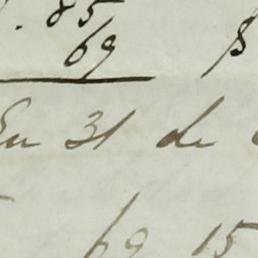 . 85
69 $
En 31 de
69 15